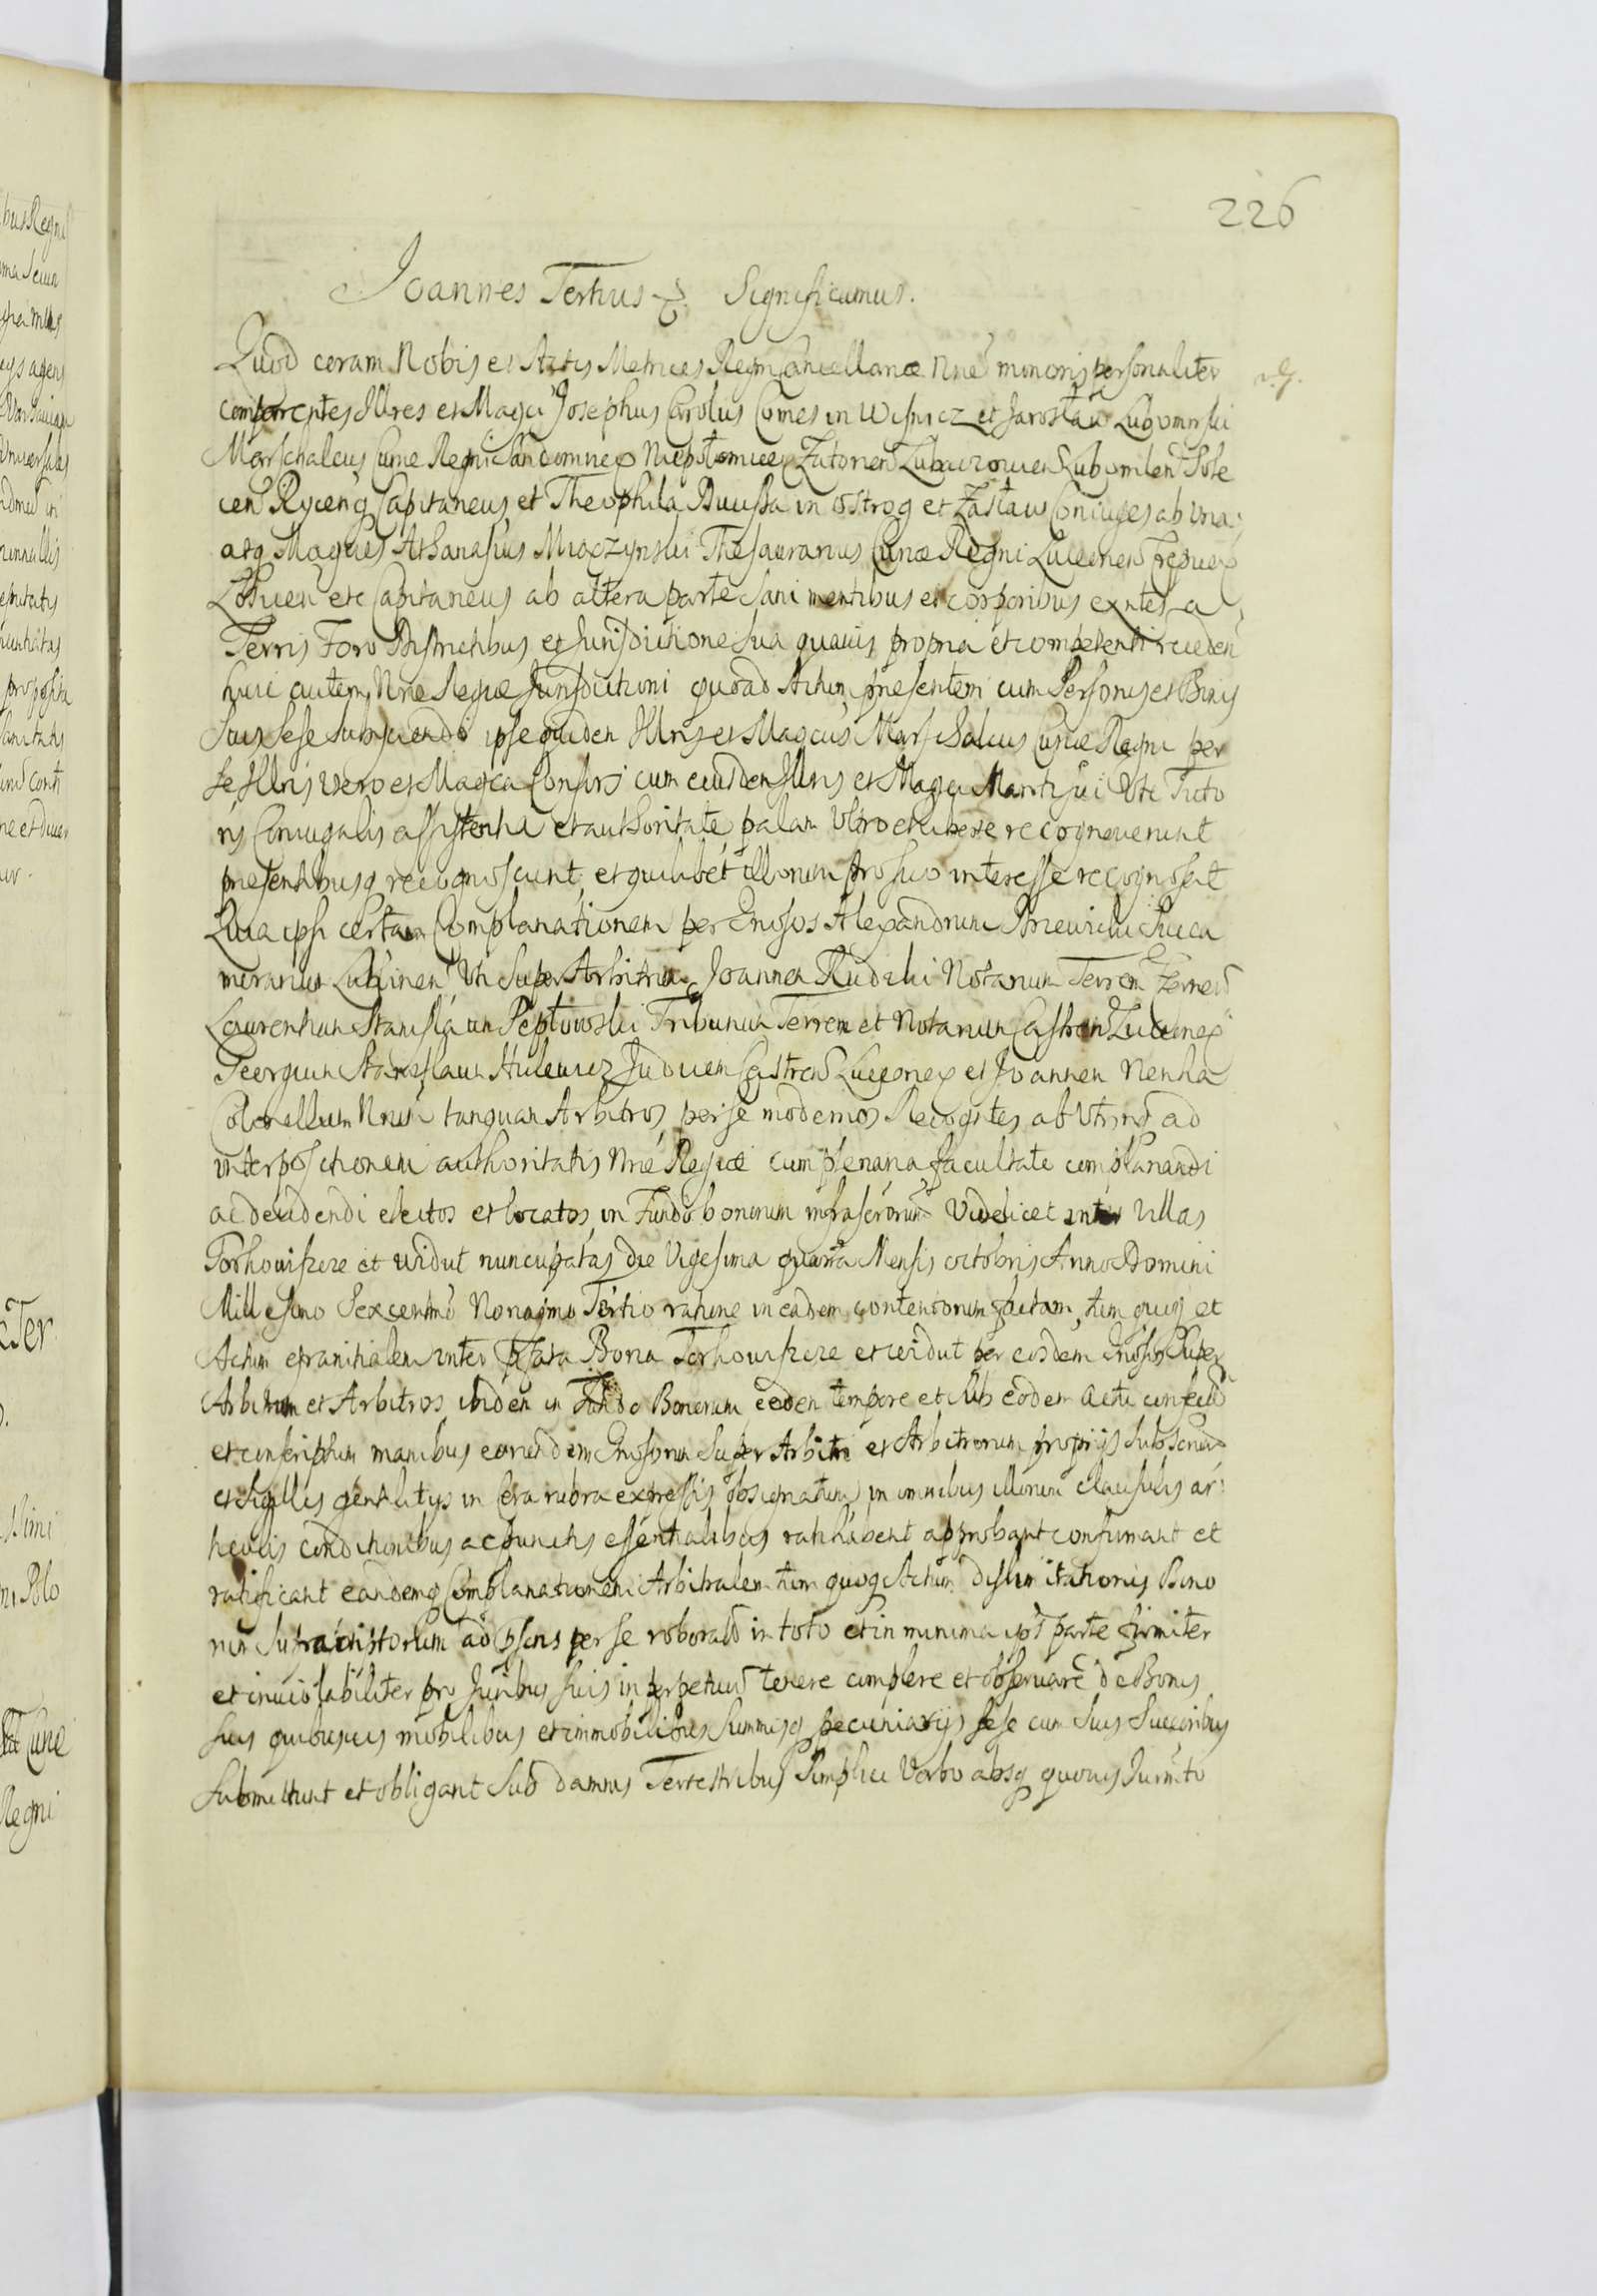 226
Joannes Tertius &c. Significamus.
Quod coram Nobis et Actis Metrices Regni Cancellariæ Nræ minoris personaliter
comparentes Illres et Magci Josephus Carolus Comes in Wisnicz et Jarosław Lubomirski
Marschalcus Curiæ Regni Sandomirien Niepołomicen Zatorien Lubaczovien Lubomlen Sole
cen Ryceng Capitaneus et Theophila Ducissa in Ostrog et Zasław Coniuges ab una
atq Magcus Athanasius Miączynski Thesaurarius Curiæ Regni Luceorien Crepicen
Łosicen etc Capitaneus ab altera parte sani mentibus et corporibus exntes a
Terris Foro Districtibus et Jurisdictione sua quavis propria et competenti receden
huic autem Nræ Regiæ Jurisdictioni quoad Actum præsentem cum Personis et Bonis
suis sese subijciendo ipse quidem Illris et Magcus Marschalcus Curiæ Regni per
se Illris vero et Magca Consors cum eiusdem Illris et Magci Mariti sui Uti Tuto
ris Coniugalis assistentia et authoritate palam Ultro et libere recognoverunt
præsentibusq recognoscunt, et quilibet illorum pro suo interesse recognoscit
Quia ipsi certam Complanationem per Gnosos Alexandrum Succa
merarium Lublinen Uti Super Arbitrum Joannem Rudzki Notarium Terrem Czernen
Laurentium Stanisláum Pepłowski Tribunum Terrem et Notarium Castren Luceorien
Georgium Stanislaum Hulewicz Judicem Castren Luceorien et Joannem Nenha
Colonellum Nrum tanquam Arbitros per se modernos Recogntes ab Utrinq ad
interpositionem authoritatis Nræ Regiæ cum plenaria facultate complanandi
ac decidendi electos et locatos in Fundo bonorum infrascrorum Videlicet inter Villas
Torhowiszcze et Widut nuncupatas die Vigesima quarta Mensis octobris Anno Domini
Millesimo Sexcentmo Nonagmo Tertio ratione in eadem contentorum factam, tum quoq et
Actum granitialem inter pfata Bona Torhowiszcze et Widut per eosdem Gnosos Super
Arbitrum et Arbitros ibidem in Fundo Bonorum eodem tempore et sub eodem actu confectum
et conscriptum manibus eorundem Gnosorum Super Arbitri et Arbitrorum proprijs subscript
et Sigillis gentilitijs in Cera rubra expressis obsignatum in omnibus illorum clausulis ar
ticulis conditionibus ac punctis essentialibus ratihabent approbant confirmant et
ratificant eandemq Complanationem Arbitralem tum quoq Actum dislimitationis Bono
rum supra dictorum ad psens per se roborato in toto et in minima ipsius parte firmiter
et inviolabiliter pro Juribus suis in perpetuum tenere complere et observare de Bonis
suis quibusvis mobilibus et immobilibus Summisq pecuniarijs sese cum suis Successoribus
submittunt et obligant Sub damnis Terrestribus Simplici Verbo absq quovis Juramto